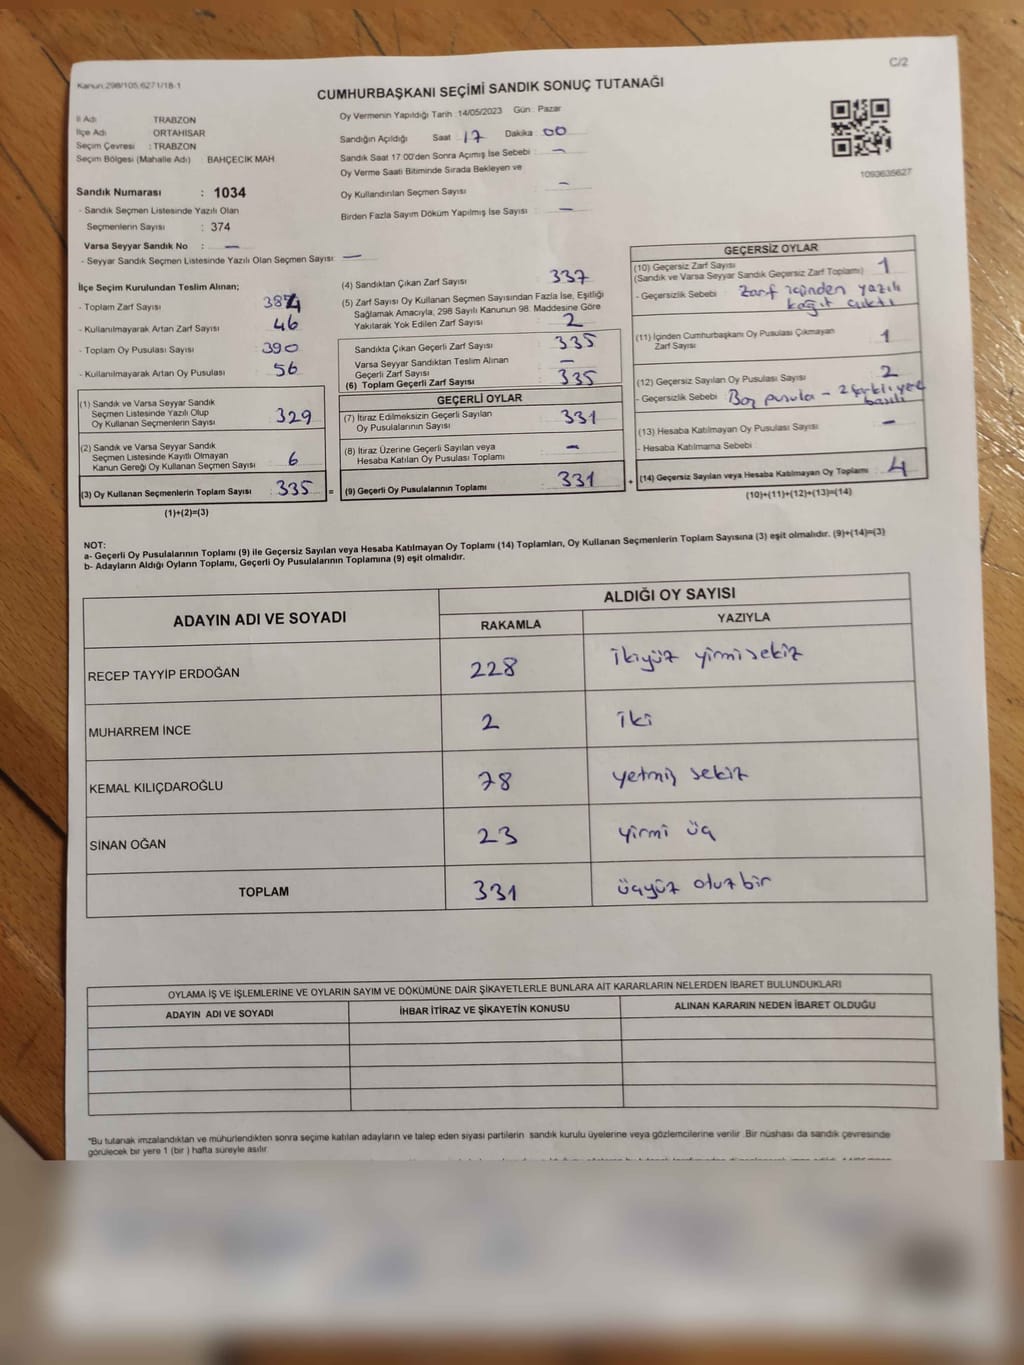 C/2
Kanun 298/105,6271/18-1
CUMHURBAŞKANI SEÇİMİ SANDIK SONUÇ TUTANAĞI
İl Adı TRABZON
İlçe Adı ORTAHİSAR
Seçim Çevresi : TRABZON
Seçim Bölgesi (Mahalle Adı) : BAHÇECİK MAH
Sandık Numarası : 1034
- Sandık Seçmen Listesinde Yazılı Olan
Seçmenlerin Sayısı : 374
Varsa Seyyar Sandık No : —
- Seyyar Sandık Seçmen Listesinde Yazılı Olan Seçmen Sayısı: —
Oy Vermenin Yapıldığı Tarih :14/05/2023 Gün : Pazar
Sandığın Açıldığı Saat : 17 Dakika : 00
Sandık Saat 17:00'den Sonra Açımış İse Sebebi : —
Oy Verme Saati Bitiminde Sırada Bekleyen ve
Oy Kullandırılan Seçmen Sayısı : —
Birden Fazla Sayım Döküm Yapılmış İse Sayısı : —
1093635627
İlçe Seçim Kurulundan Teslim Alınan;
- Toplam Zarf Sayısı : 384
- Kullanılmayarak Artan Zarf Sayısı : 46
- Toplam Oy Pusulası Sayısı : 390
- Kullanılmayarak Artan Oy Pusulası : 56
(1) Sandık ve Varsa Seyyar Sandık
Seçmen Listesinde Yazılı Olup
Oy Kullanan Seçmenlerin Sayısı : 329
(2) Sandık ve Varsa Seyyar Sandık
Seçmen Listesinde Kayıtlı Olmayan
Kanun Gereği Oy Kullanan Seçmen Sayısı : 6
(3) Oy Kullanan Seçmenlerin Toplam Sayısı : 335 =
(1)+(2)=(3)
(4) Sandıktan Çıkan Zarf Sayısı : 337
(5) Zarf Sayısı Oy Kullanan Seçmen Sayısından Fazla İse, Eşitliği
Sağlamak Amacıyla; 298 Sayılı Kanunun 98. Maddesine Göre
Yakılarak Yok Edilen Zarf Sayısı : 2
Sandıkta Çıkan Geçerli Zarf Sayısı : 335
Varsa Seyyar Sandıktan Teslim Alınan
Geçerli Zarf Sayısı : —
(6) Toplam Geçerli Zarf Sayısı : 335
GEÇERLİ OYLAR
(7) İtiraz Edilmeksizin Geçerli Sayılan
Oy Pusulalarının Sayısı : 331
(8) İtiraz Üzerine Geçerli Sayılan veya
Hesaba Katılan Oy Pusulası Toplamı : —
(9) Geçerli Oy Pusulalarının Toplamı : 331 +
GEÇERSİZ OYLAR
(10) Geçersiz Zarf Sayısı
(Sandık ve Varsa Seyyar Sandık Geçersiz Zarf Toplamı) : 1
- Geçersizlik Sebebi : Zarf içinden yazılı
kağıt çıktı
(11) İçinden Cumhurbaşkanı Oy Pusulası Çıkmayan
Zarf Sayısı : 1
(12) Geçersiz Sayılan Oy Pusulası Sayısı : 2
- Geçersizlik Sebebi : Boş pusula - 2 farklı yere
basılı
(13) Hesaba Katılmayan Oy Pusulası Sayısı : —
- Hesaba Katılmama Sebebi :
(14) Geçersiz Sayılan veya Hesaba Katılmayan Oy Toplamı : 4
(10)+(11)+(12)+(13)=(14)
NOT:
a- Geçerli Oy Pusulalarının Toplamı (9) ile Geçersiz Sayılan veya Hesaba Katılmayan Oy Toplamı (14) Toplamları, Oy Kullanan Seçmenlerin Toplam Sayısına (3) eşit olmalıdır. (9)+(14)=(3)
b- Adayların Aldığı Oyların Toplamı, Geçerli Oy Pusulalarının Toplamına (9) eşit olmalıdır.
ADAYIN ADI VE SOYADI ALDIĞI OY SAYISI
RAKAMLA YAZIYLA
RECEP TAYYİP ERDOĞAN 228 ikiyüz yirmisekiz
MUHARREM İNCE 2 iki
KEMAL KILIÇDAROĞLU 78 yetmiş sekiz
SİNAN OĞAN 23 yirmi üç
TOPLAM 331 üçyüz otuzbir
OYLAMA İŞ VE İŞLEMLERİNE VE OYLARIN SAYIM VE DÖKÜMÜNE DAİR ŞİKAYETLERLE BUNLARA AİT KARARLARIN NELERDEN İBARET BULUNDUKLARI
ADAYIN ADI VE SOYADI İHBAR İTİRAZ VE ŞİKAYETİN KONUSU ALINAN KARARIN NEDEN İBARET OLDUĞU
*Bu tutanak imzalandıktan ve mühürlendikten sonra seçime katılan adayların ve talep eden siyasi partilerin sandık kurulu üyelerine veya gözlemcilerine verilir. Bir nüshası da sandık çevresinde
görülecek bir yere 1 (bir ) hafta süreyle asılır.